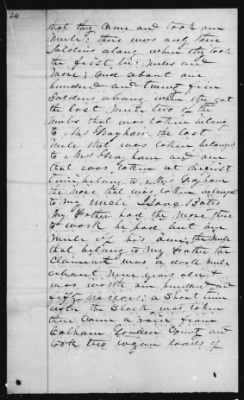 that they came and took one
mule; there was any
Soldiers along when they took
the first
Mules and
More; and about one
hundred and twenty five
Soldiers along when they got
the last Mule two of the
mules that was taken belong
to Mr Graham, the last
mule that was taken belonged
to Mr Graham and one
that was taken at first
the Mare that was taken belonged
to my Uncle Isaac Bates
My Father had the Mare there
to work he had but one
mule of his own, the mule
that belong to My Father the
Claimant was a dark mule
about Nine years old &
was worth one hundred and
fifty Dollars; a Short time
after the Stock was taken
there came a raid from
Calhoun Gordon County and
took two wagon loads of